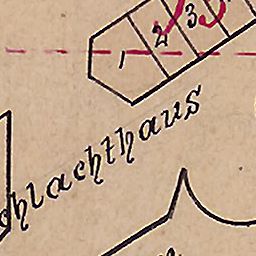 1 2 3
chlachthaus